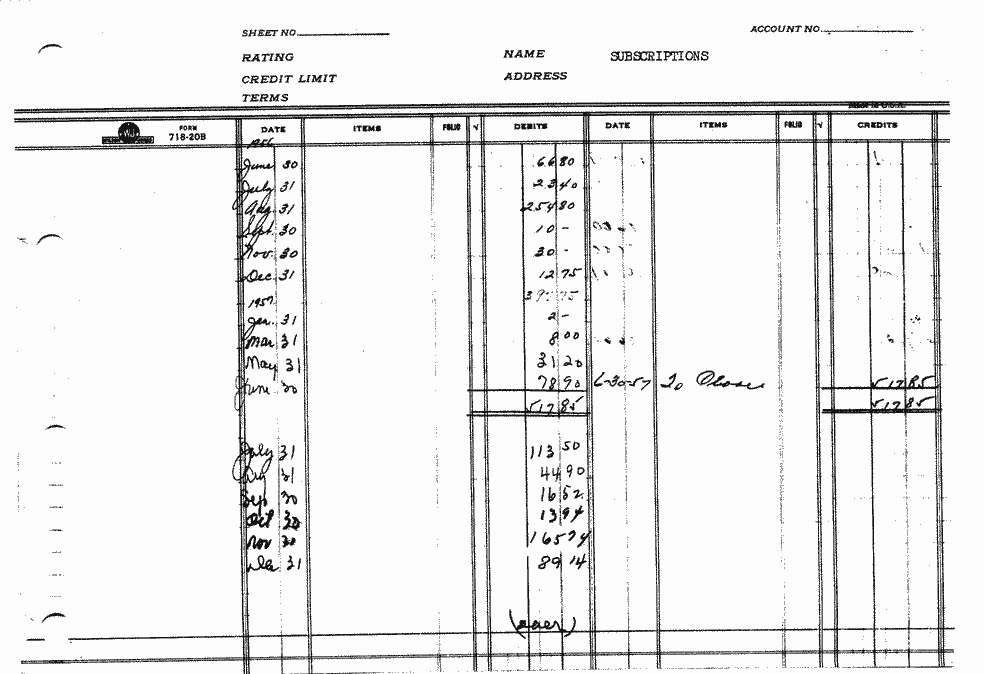 SHEET NO.
ACCOUNT NO.
RATING
NAME SUBSCRIPTIONS
CREDIT LIMIT
ADDRESS
TERMS
MADE IN U.S.A.
FORM
718-20B
DATE ITEMS FOLIO √ DEBITS DATE ITEMS FOLIO √ CREDITS
1956
June 30 66 80
July 31 23 40
Aug. 31 254 80
Sept. 30 10 -
Nov. 30 30 -
Dec. 31 12 75
1957 397 75
Jan. 31 2 -
Mar. 31 8 00
May 31 31 20
June 30 78 90 6-30-57 To Close 517 85
517 85 517 85
July 31 113 50
Aug 31 44 90
Sep 30 16 52
Oct 30 13 94
Nov 30 165 74
Dec 31 89 14
(over)